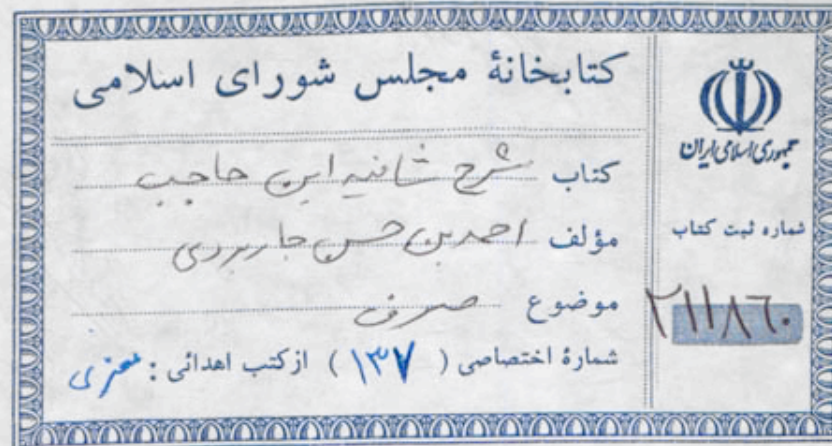 کتابخانهٔ مجلس شورای اسلامی
کتاب شرح شافیه ابن حاجب
مؤلف احمد بن حسن جاربردی
موضوع صرف
شمارهٔ اختصاصی ( ۱۳۷ ) از کتب اهدائی :
جمهوری اسلامی ایران
شماره ثبت کتاب
۲۱۱۸۶۰